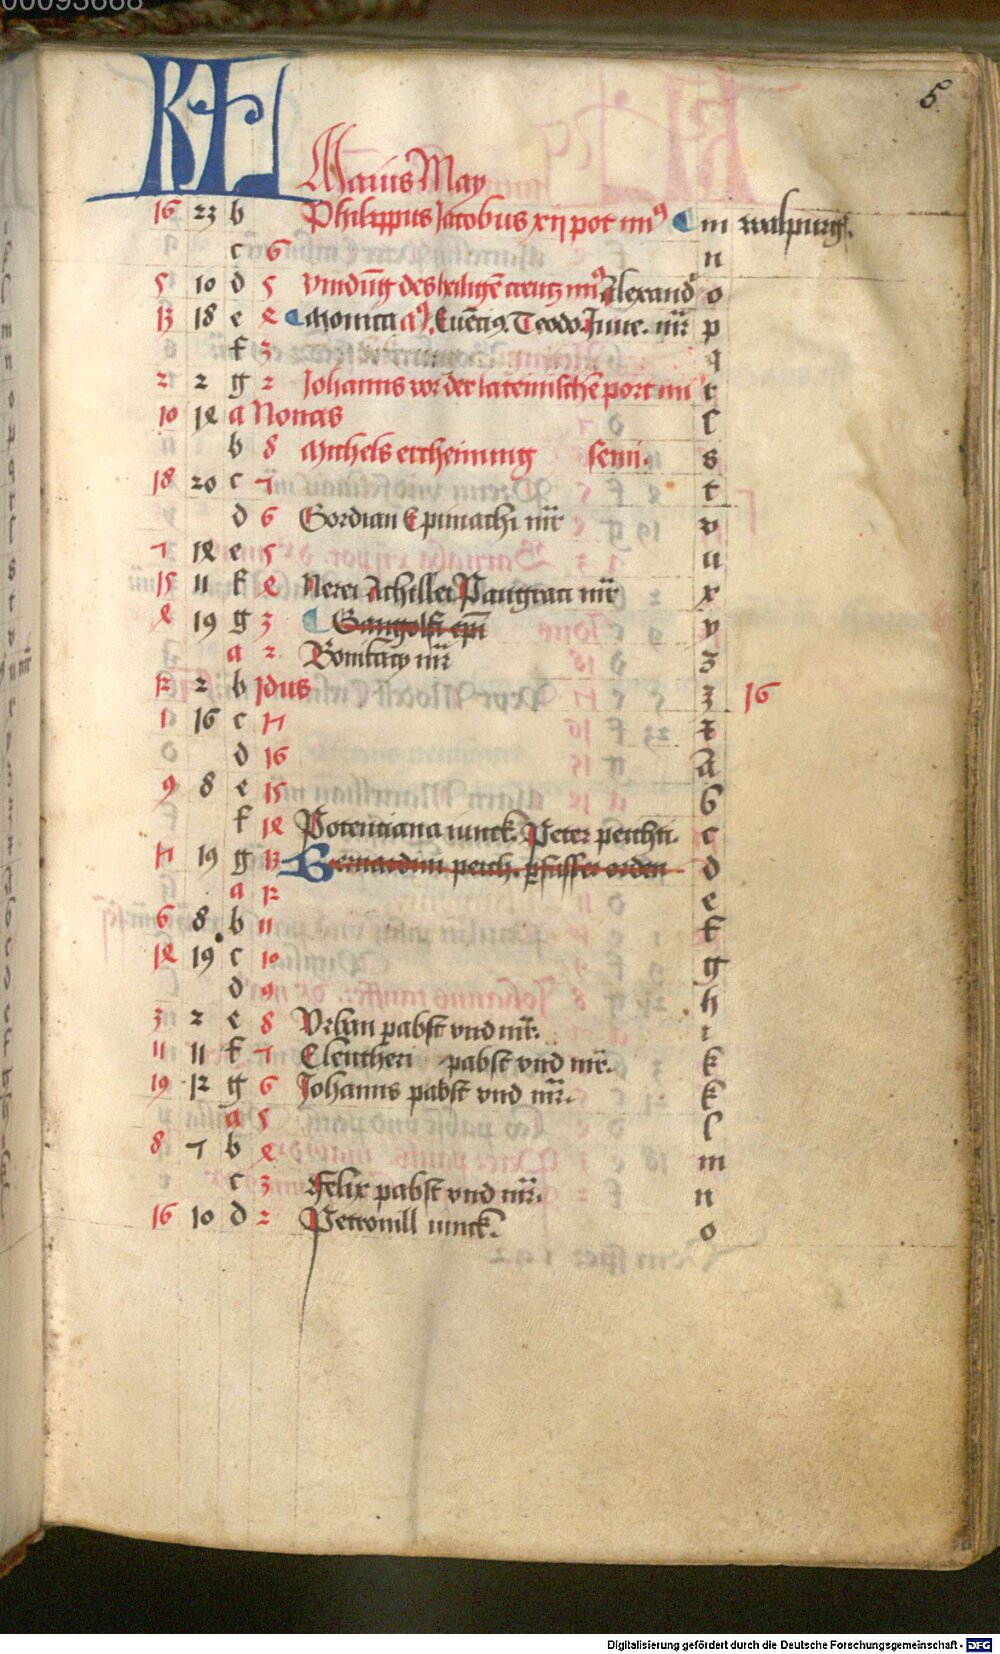 00093668
5
KL Maius May
16 23 b Philippus Jacobus xij pot mi⁹ m walpurg.
c 6 n
5 10 d 5 vindūg des heiligē creutz mi⁹ Alexand o
13 18 e 4 Monica Euēti⁹. Teodo. Juue. mr̄ p
f 3 q
2 2 g 2 Johanns vor der lateinischē port mi r
10 14 a Nonas ſ
b 8 Michels erscheinung semi. s
18 20 c 7 t
d 6 Gordian Epimachi mr̄ v
7 14 e 5 u
15 11 f 4 Nerei Achillei Pangracii mr̄ x
4 19 g 3 Gangolfi epī y
a 2 Bonifacy mr̄ z
12 2 b Idus 3 16
1 16 c 17
d 16 A
9 8 e 15 b
f 14 Potenciana iunck. Peter peichti. c
17 19 g 13 Bernardini peich. pfuſſer orden d
a 12 e
6 8 b 11 f
14 19 c 10 g
d 9 h
3 2 e 8 Vrban pabst vnd mr̄. i
11 11 f 7 Eleutheri pabst vnd mr̄. k
19 12 g 6 Johanns pabst vnd mr̄. k
a 5 l
8 7 b 4 m
c 3 Felix pabst vnd mr̄. n
16 10 d 2 Petronill iunck. o
Digitalisierung gefördert durch die Deutsche Forschungsgemeinschaft - DFG